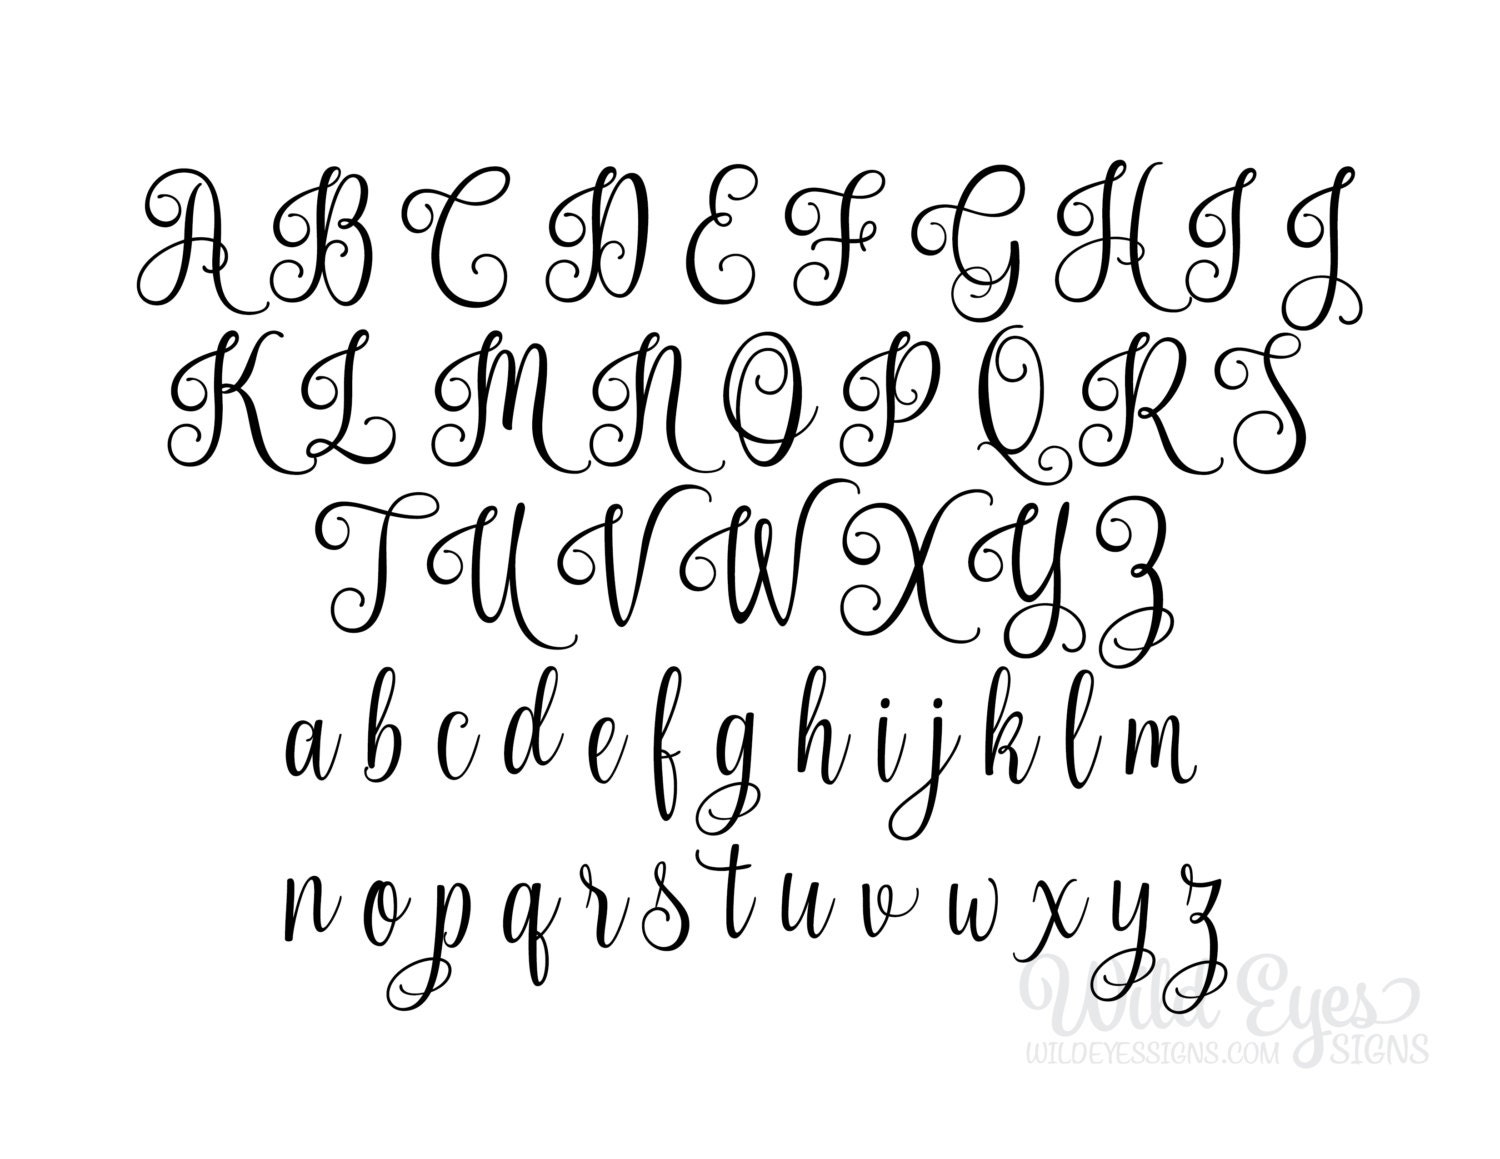 A B C D E F G H I J
K L M N O P Q R S
T U V W X Y Z
a b c d e f g h i j k l m
n o p q r s t u v w x y z
Wild Eyes
WILDEYESSIGNS.COM SIGNS